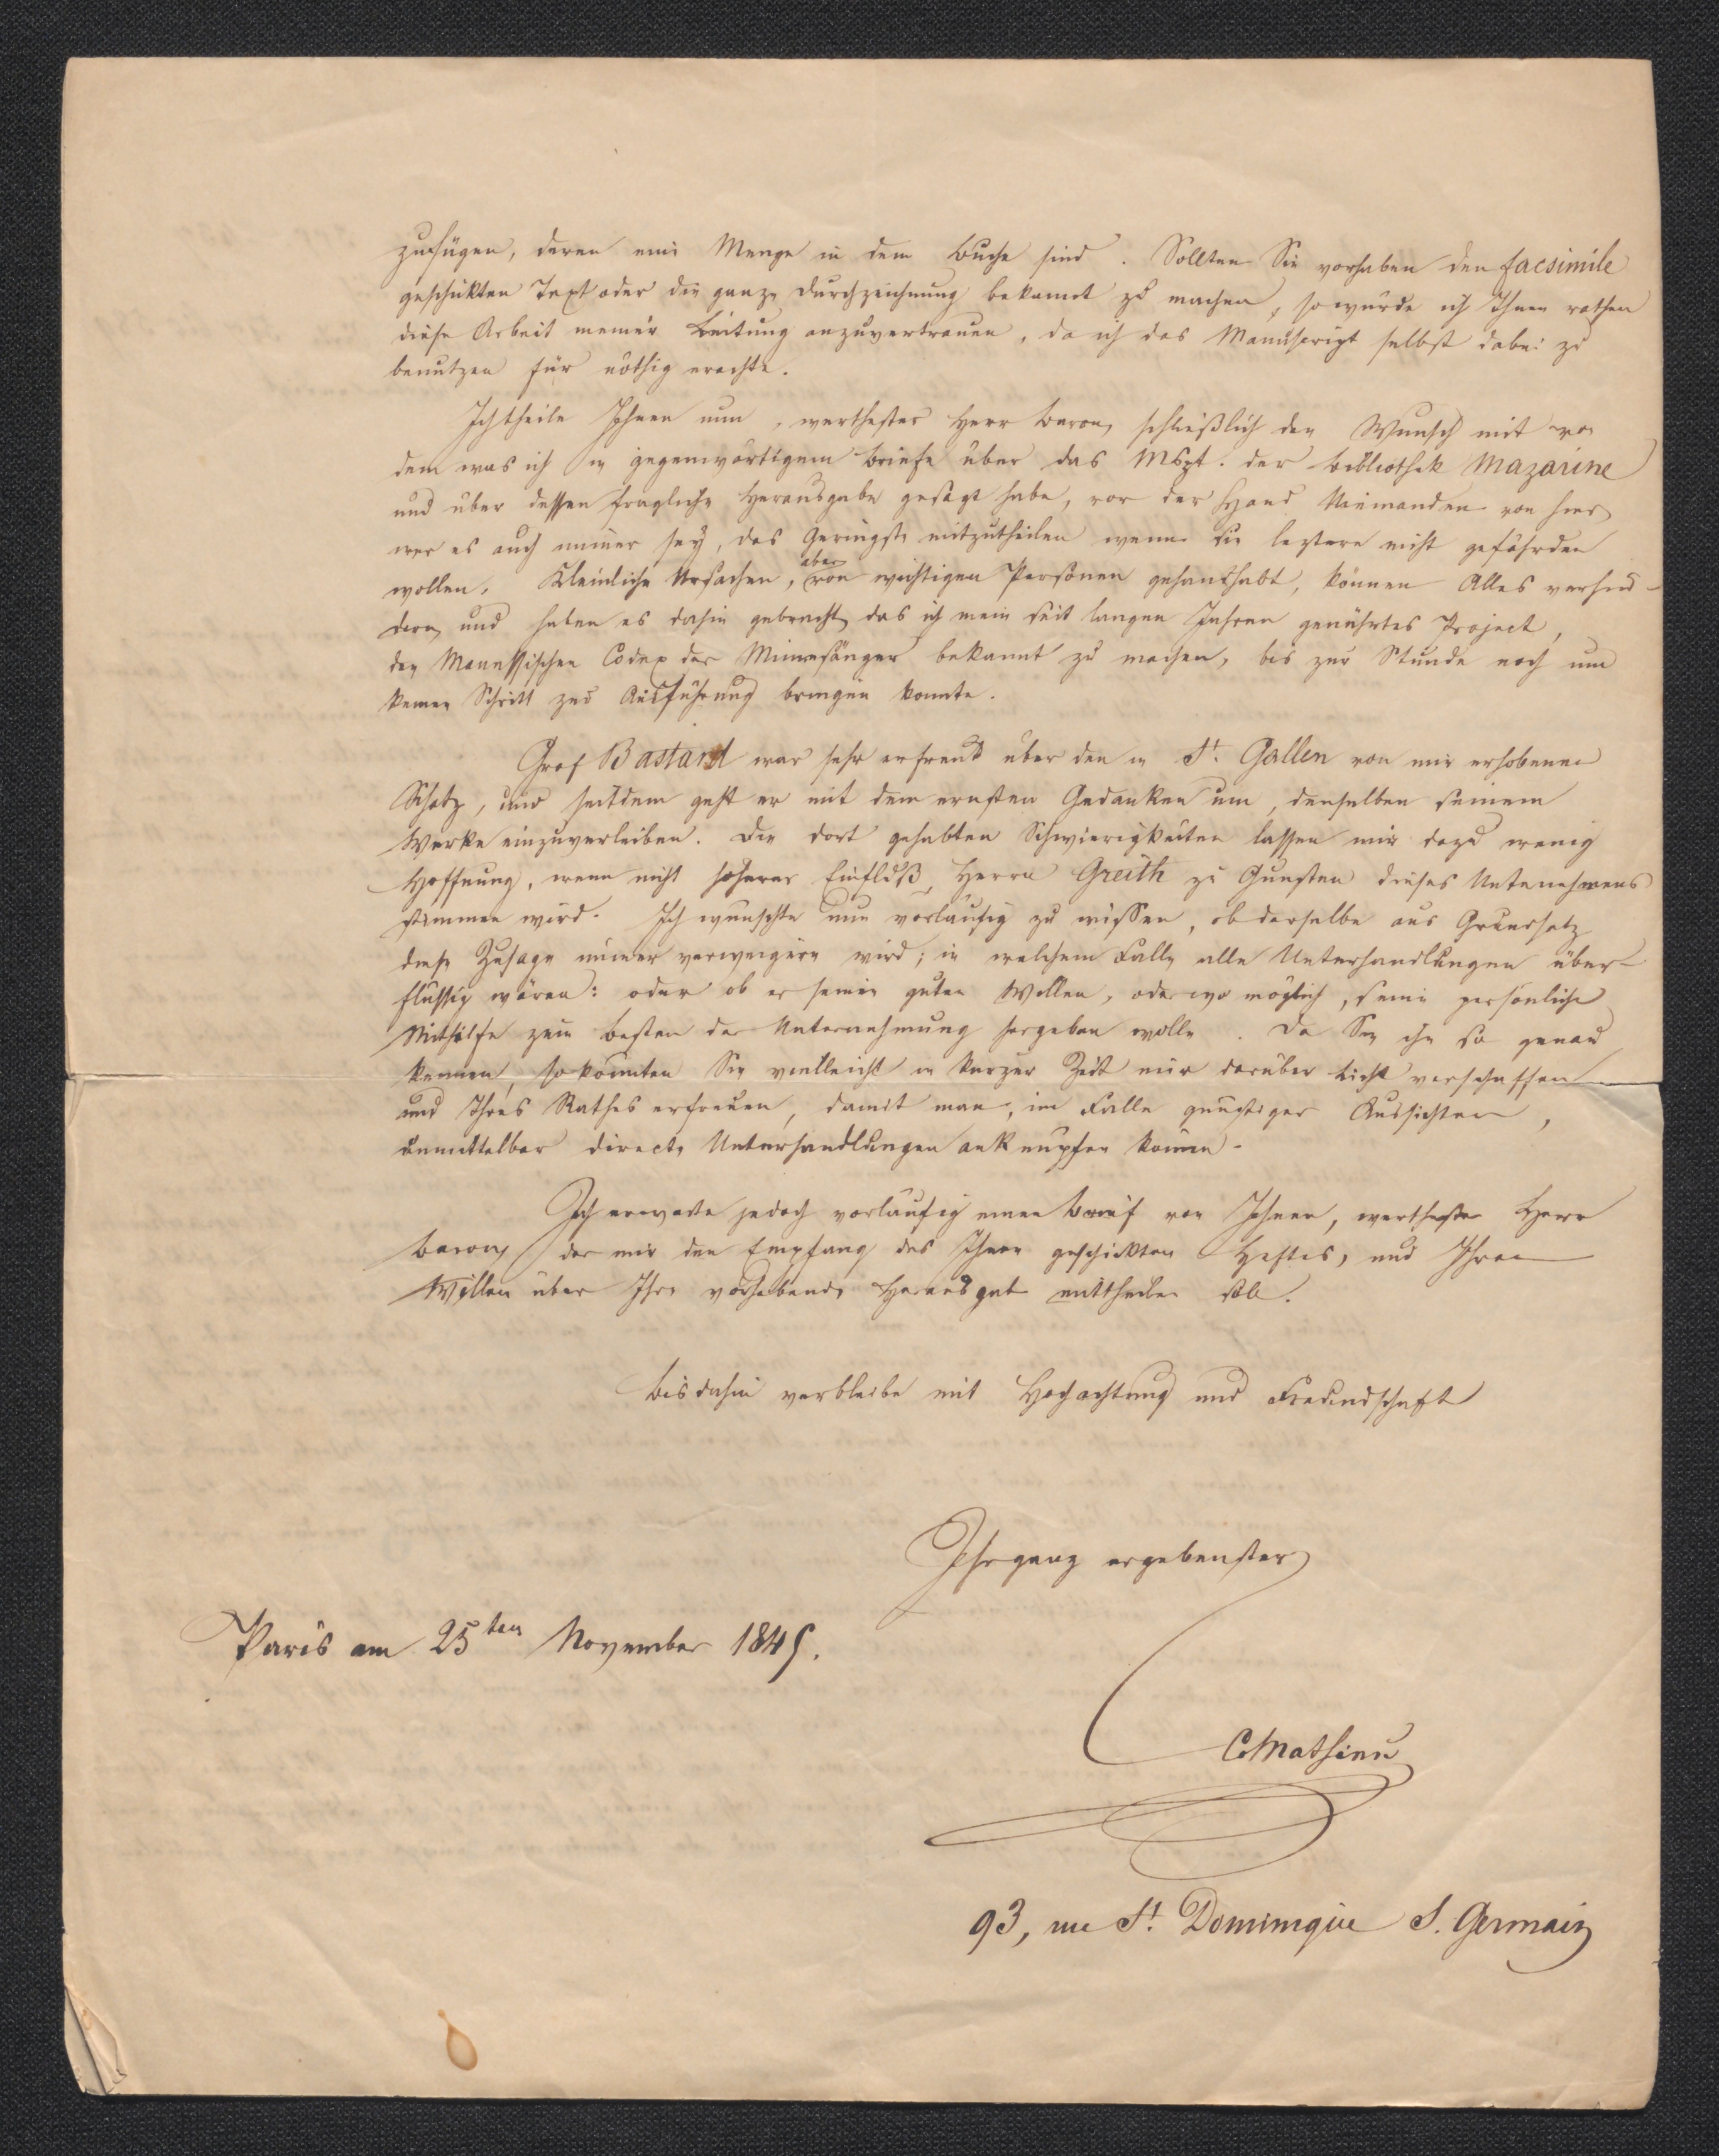 zufügen, deren eine Menge in dem Buche sind. Sollten Sie vorhaben den facsimile
geschickten Text oder die ganze Durchzeichnung bekannt zu machen, so würde ich Ihnen rathen
diese Arbeit meiner Leitung anzuvertrauen, da ich das Manuscript selbst dabei zu
benutzen für nöthig erachte.
Ich theile Ihnen nun, werthester Herr Baron, schließlich den Wunsch mit von
dem was ich in gegenwärtigem Briefe über das Mspt. der Bibliothek Mazarine
und über dessen fragliche Herausgabe gesagt habe, vor der Hand Niemanden von hier
wer es auch immer sey, das Geringste mitzutheilen wenn Sie leztere nicht gefährden
wollen. Kleinliche Ursachen, aber von wichtigen Personen gehandhabt, können Alles verhin-
dern, und haben es dahin gebracht, das ich mein seit langen Jahren genährtes Project,
den Manessischen Codex der Minnesänger bekannt zu machen, bis zur Stunde noch um
keinen Schritt zur Ausführung bringen konnte.
Graf Bastard war sehr erfreut über den in St. Gallen von mir erhobenen
Schatz, und seitdem geht er mit dem ernsten Gedanken um, denselben seinem
Werke einzuverleiben. Die dort gehabten Schwierigkeiten lassen mir dazu wenig
Hoffnung, wenn nicht höherer Einfluß, Herrn Greith zu Gunsten dieses Unternehmens
stimmen wird. Ich wünschte nun vorläufig zu wissen, ob derselbe aus Grundsatz
diese Zusage immer verweigern wird; in welchem Falle alle Unterhandlungen über-
flüssig wären: oder ob er seinen guten Willen, oder wo möglich, seine persönliche
Mithilfe zum Besten der Unternehmung hergeben wolle. Da Sie ihn so genau
kennen, so könnten Sie vielleicht in kurzer Zeit mir darüber Licht verschaffen
und Ihres Rathes erfreuen, damit man, im Falle günstiger Aussichten,
unmittelbar directe Unterhandlungen anknüpfen könne.
Ich erwarte jedoch vorläufig einen Brief von Ihnen, werthester Herr
Baron, der mir den Empfang des Ihnen geschickten Heftes, und Ihren
Willen über Ihre vorhabende Herausgabe mittheilen soll.
Bis dahin verbleibe mit Hochachtung und Freundschaft
Ihr ganz ergebenster
Paris am 25ten November 1845.
C Mathieu
93, rue St. Dominique S. Germain